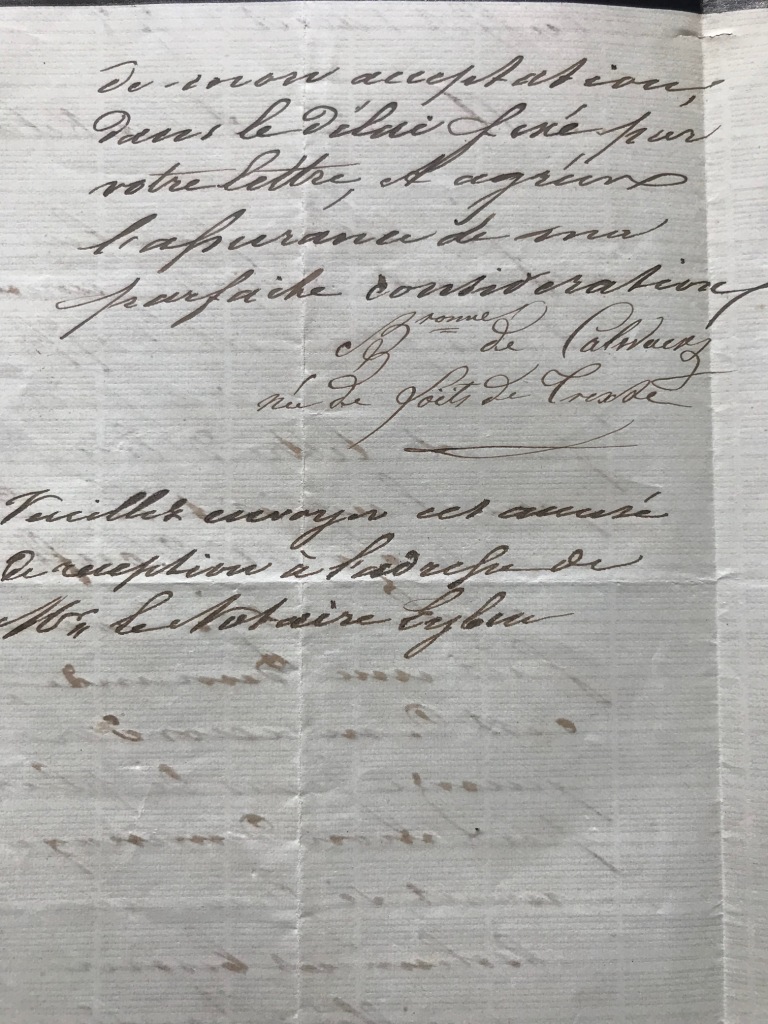 de mon acceptation,
dans le délai fixé par
votre lettre, et agréer
l'assurance de ma
parfaite consideration
Bronne de
née de de
Veuillez envoyer cet accusé
de reception à l'adresse de
Mr. le Notaire